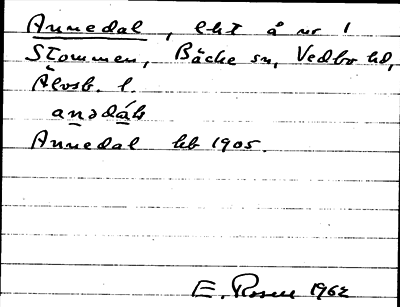 Annedal, lht å nr 1
Stommen, Bäcke sn, Vedbo hd,
Älvsb. l.
anədáḷ
Annedal hb 1905.
E. Rosell 1962